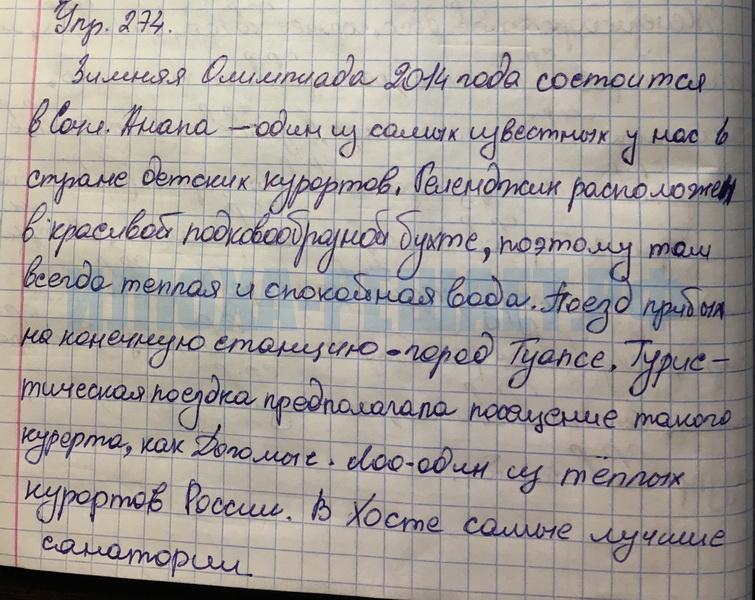 Упр. 274.
Зимняя Олимпиада 2014 года состоится
в Сочи. Анапа – один из самых известных у нас в
стране детских курортов. Геленджик расположен
в красивой подковообразной бухте, поэтому там
всегда теплая и спокойная вода. Поезд прибыл
на конечную станцию - город Туапсе. Турис-
тическая поездка предполагала посещение такого
курорта, как Дагомыс. Лоо - один из тёплых
курортов России. В Хосте самые лучшие
санатории.